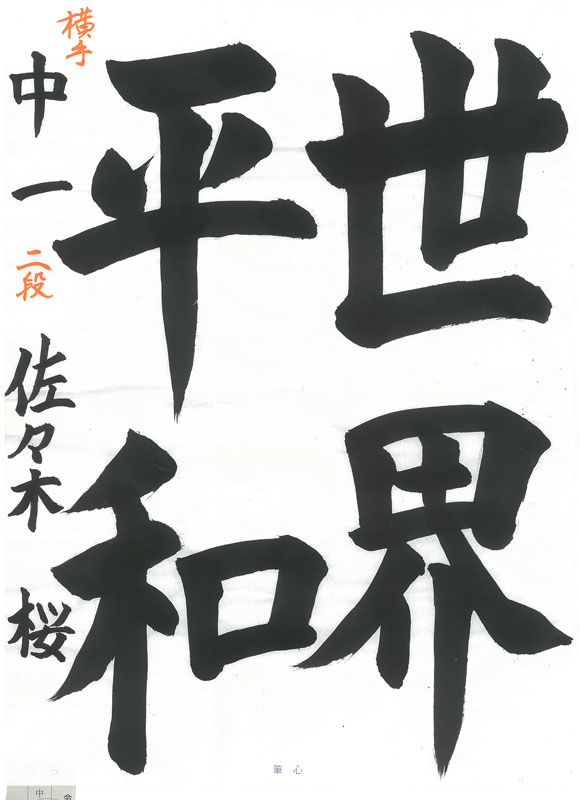 世界
平和
横手
中一 二段 佐々木 桜
筆心
中